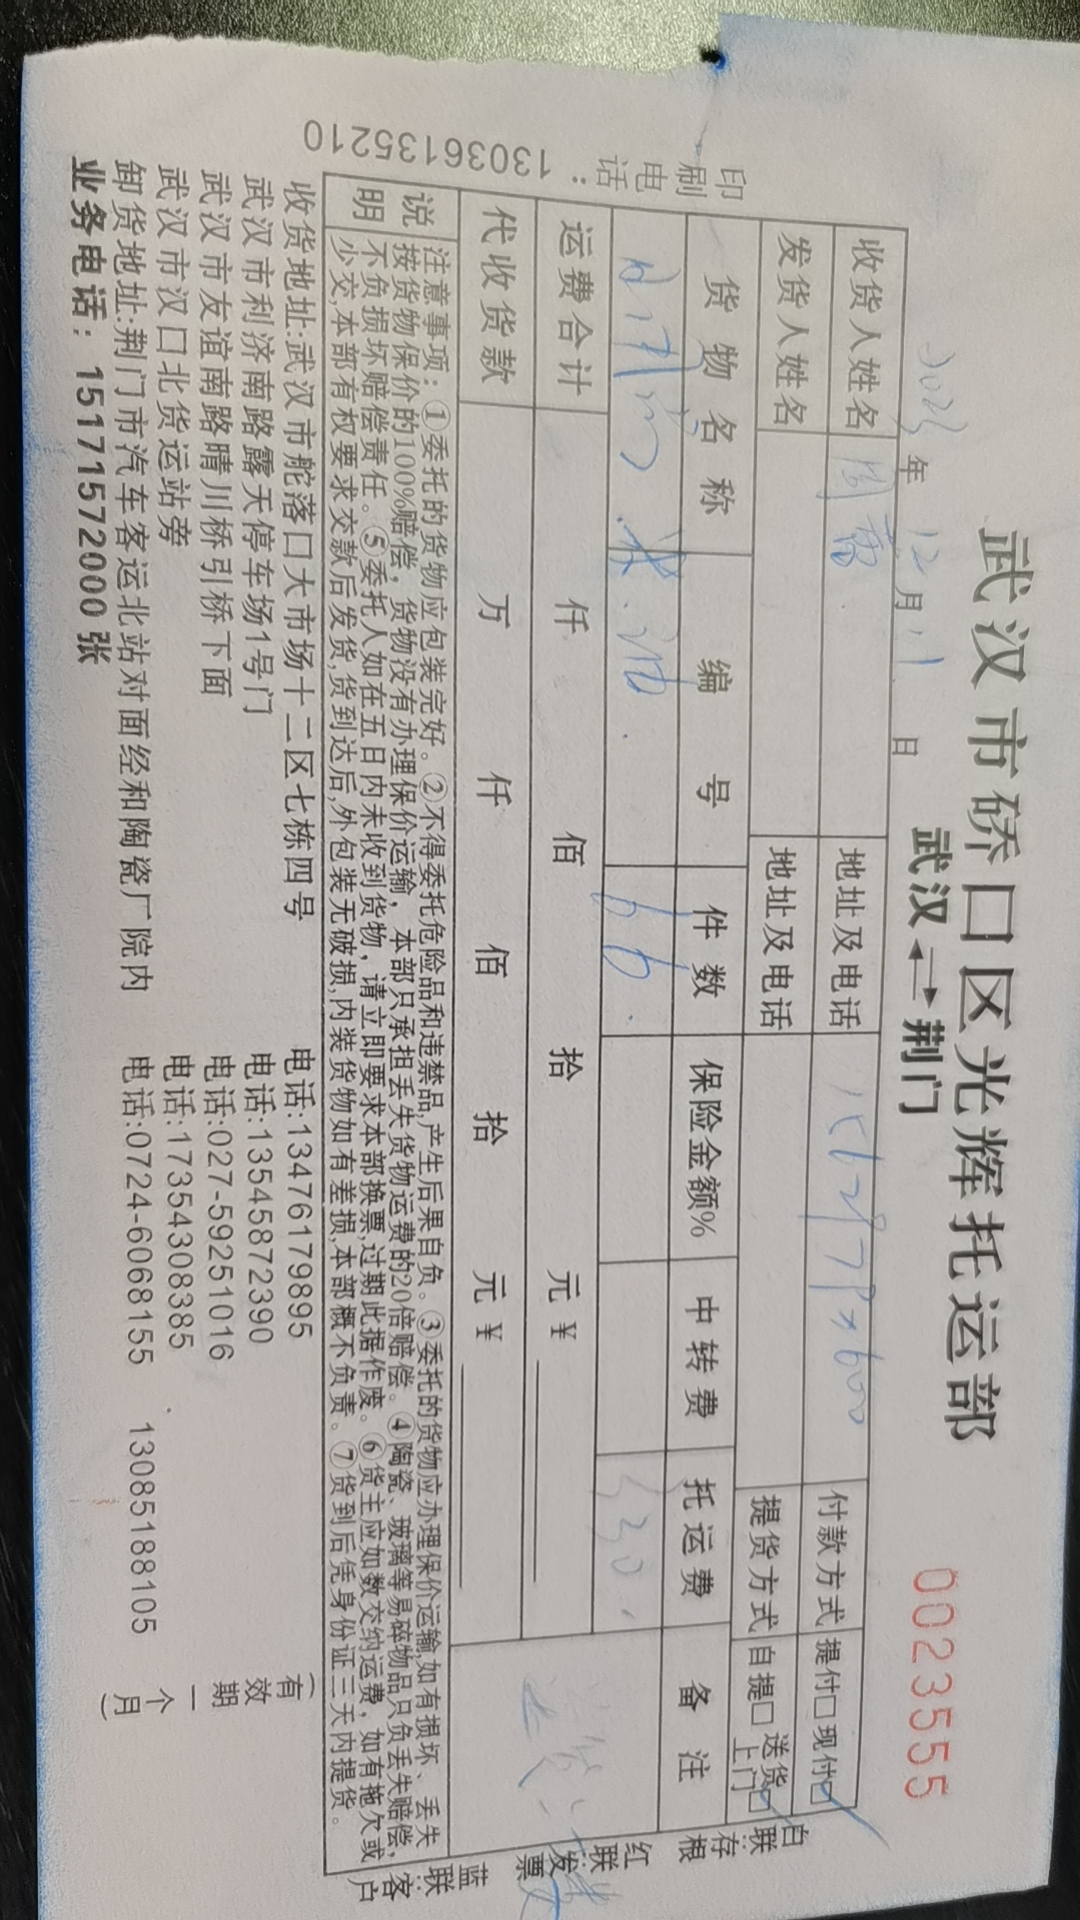 武汉市硚口区光辉托运部
武汉⇄荆门
0023555
年 12月11日
收货人姓名 周雷 地址及电话 付款方式 提付□ 现付□
发货人姓名 地址及电话 提货方式 自提□ 送货上门□
货物名称 编号 件数 保险金额% 中转费 托运费 备注
66 330
运费合计 仟 佰 拾 元 ¥
代收货款 万 仟 佰 拾 元 ¥
说明
注意事项:①委托的货物应包装完好。②不得委托危险品和违禁品,产生后果自负。③委托的货物应办理保价运输,如有损坏、丢失
按货物保价的100%赔偿,货物没有办理保价运输,本部只承担丢失货物运费的20倍赔偿。④陶瓷、玻璃等易碎物品只负丢失赔偿,
不负损坏赔偿责任。⑤委托人如在五日内未收到货物,请立即要求本部换票,过期此据作废。⑥货主应如数交纳运费,如有拖欠或
少交,本部有权要求交款后发货,货到达后,外包装无破损,内装货物如有差损,本部概不负责。⑦货到后凭身份证三天内提货。
收货地址:武汉市舵落口大市场十二区七栋四号 电话:13476179895
武汉市利济南路露天停车场1号门 电话:13545872390
武汉市友谊南路晴川桥引桥下面 电话:027-59251016
武汉市汉口北货运站旁 电话:17354308385
卸货地址:荆门市汽车客运北站对面经和陶瓷厂院内 电话:0724-6068155 13085188105
业务电话:15171572000 张
(有效期一个月)
白联存根 红联发票 蓝联客户
印刷电话:13036135210